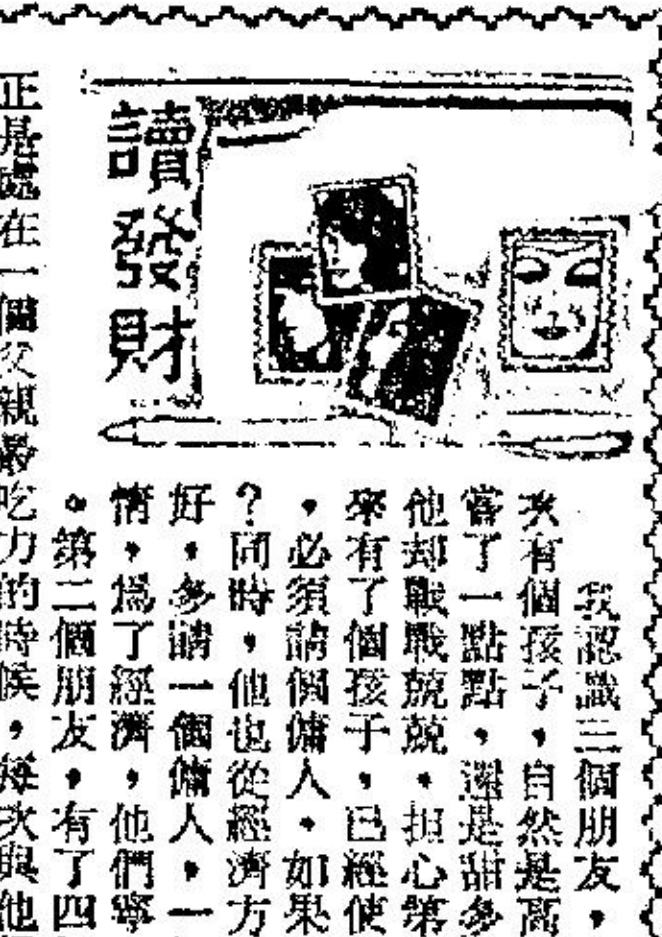 讀發財
我認識三個朋友，
次有個孩子，自然是高
嘗了一點點，還是甜多
他却戰戰兢兢，担心第
來有了個孩子，已經使
，必須請個傭人，如果
？同時，他也從經濟方
好，多請一個傭人，一
情，爲了經濟，他們寧
。第二個朋友，有了四
正是處在一個父親最吃力的時候，每次與他